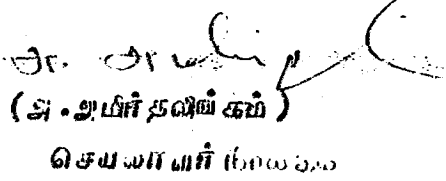 அ. அமிர்
(அ. அமிர்தலிங்கம்)
செயலாளர் நாயகம்